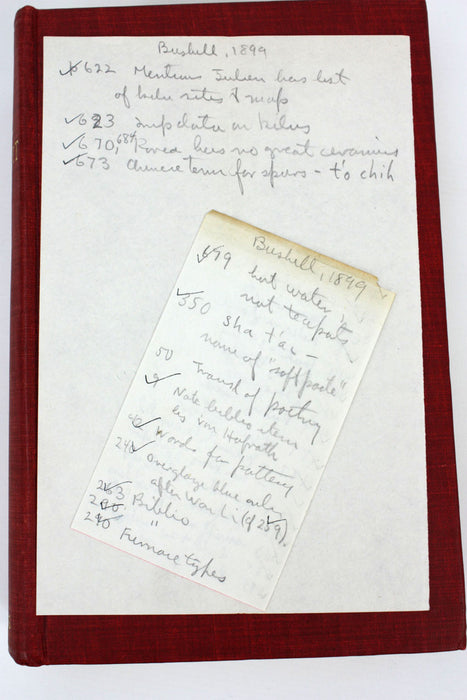 Bushell, 1899
622 Mentions Julien has list
of kiln sites & map
623 Imp data on kilns
670, 684 Korea has no great ceramics
673 Chinese term for spurs - t'o chih
Bushell, 1899
679 hot water
not teapots
350 sha t'ai -
name of "soft paste"
50 Transl of poetry
9 Note biblio item
by von Hofrath
Words for pottery
241 Overglaze blue only
after Wan Li (cf 259).
263 Biblio
240 "
240 Furnace types